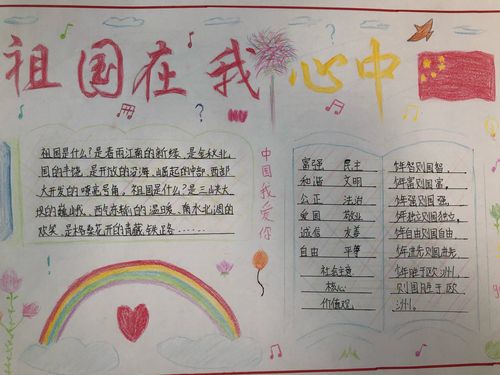 祖国在我心中
祖国是什么?是春雨江南的新绿,是金秋北
国的丰饶,是开放的沿海,崛起的中部,西部
大开发的嘹亮号角。祖国是什么?是三峡大
坝的巍峨、西气东输的温暖、南水北调的
欢笑,是格桑花开的青藏铁路……
中国我爱你
富强 民主
和谐 文明
公正 法治
爱国 敬业
诚信 友善
自由 平等
社会主义
核心
价值观
少年智则国智,
少年富则国富,
少年强则国强,
少年独立则国独立,
少年自由则国自由
少年进步则国进步
少年胜于欧洲,
则国胜于欧
洲。